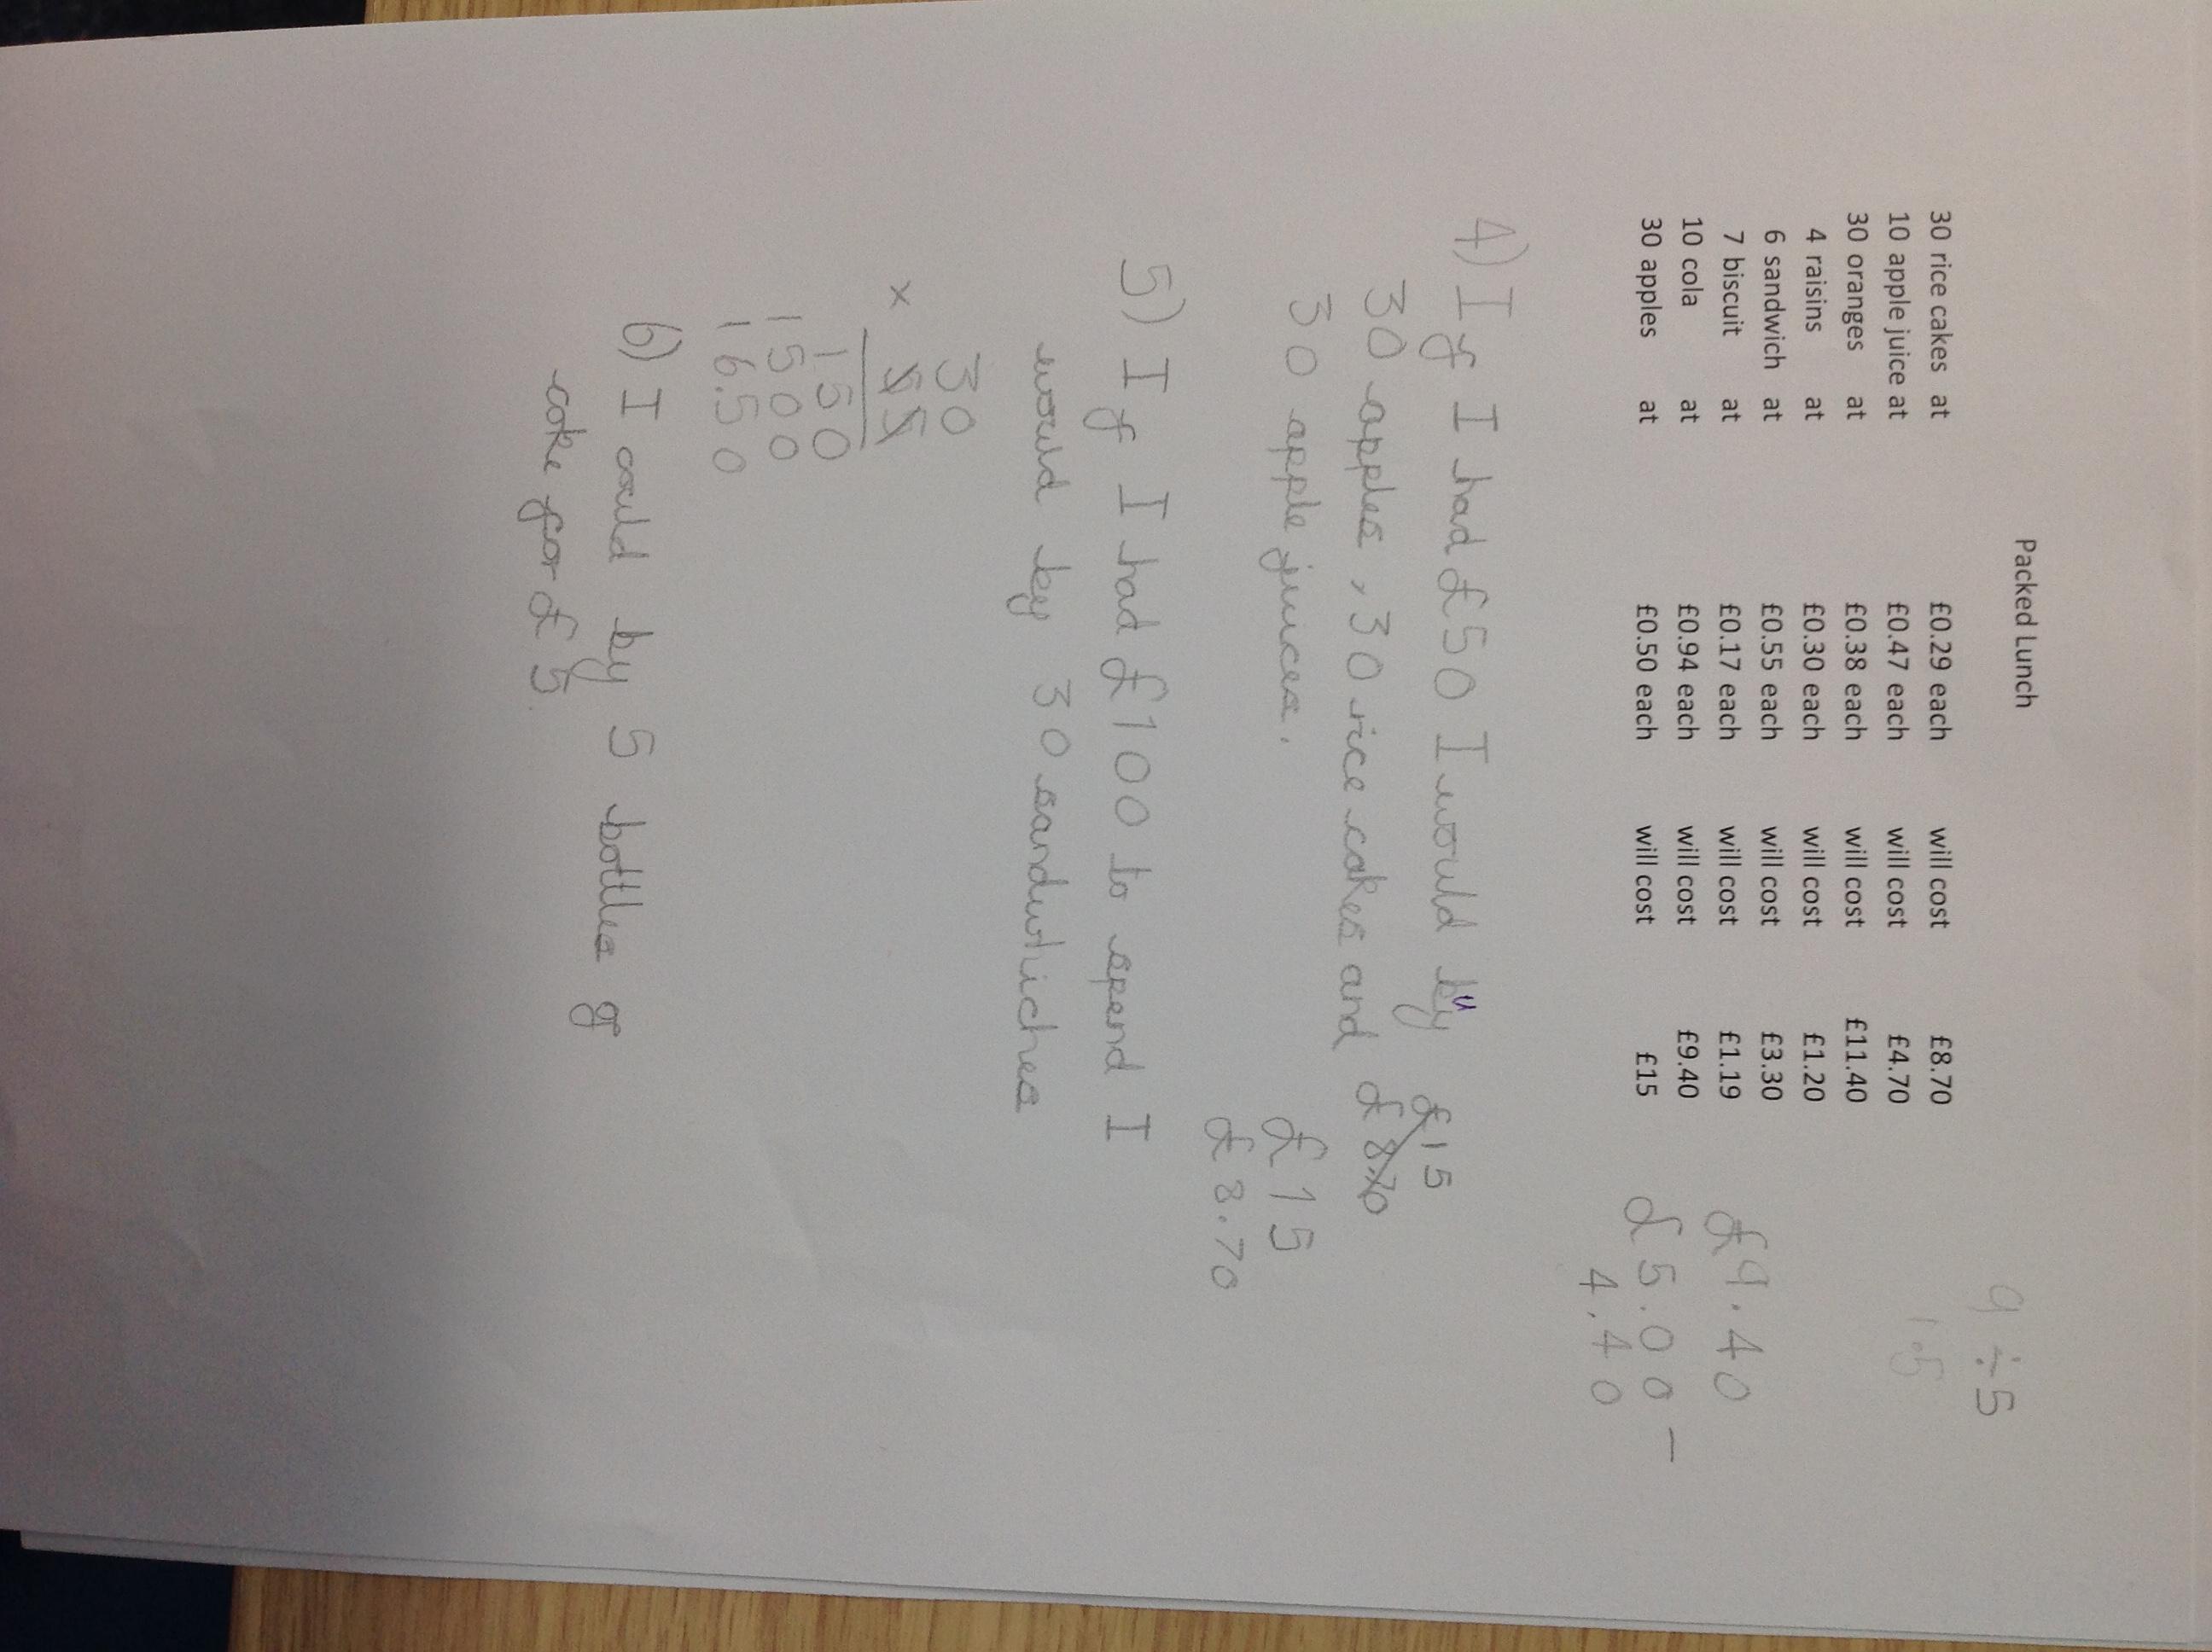 Packed Lunch
30 rice cakes at £0.29 each will cost £8.70
10 apple juice at £0.47 each will cost £4.70
30 oranges at £0.38 each will cost £11.40
4 raisins at £0.30 each will cost £1.20
6 sandwich at £0.55 each will cost £3.30
7 biscuit at £0.17 each will cost £1.19
10 cola at £0.94 each will cost £9.40
30 apples at £0.50 each will cost £15
9 ÷ 5
1.5
£9.40
£5.00 -
4.40
4) If I had £50 I would buy
30 apples, 30 rice cakes and
30 apple juices.
£15
£8.70
£15
£8.70
5) If I had £100 to spend I
would by 30 sandwiches
30
x 55
150
1500
16.50
6) I could by 5 bottles of
coke for £5.